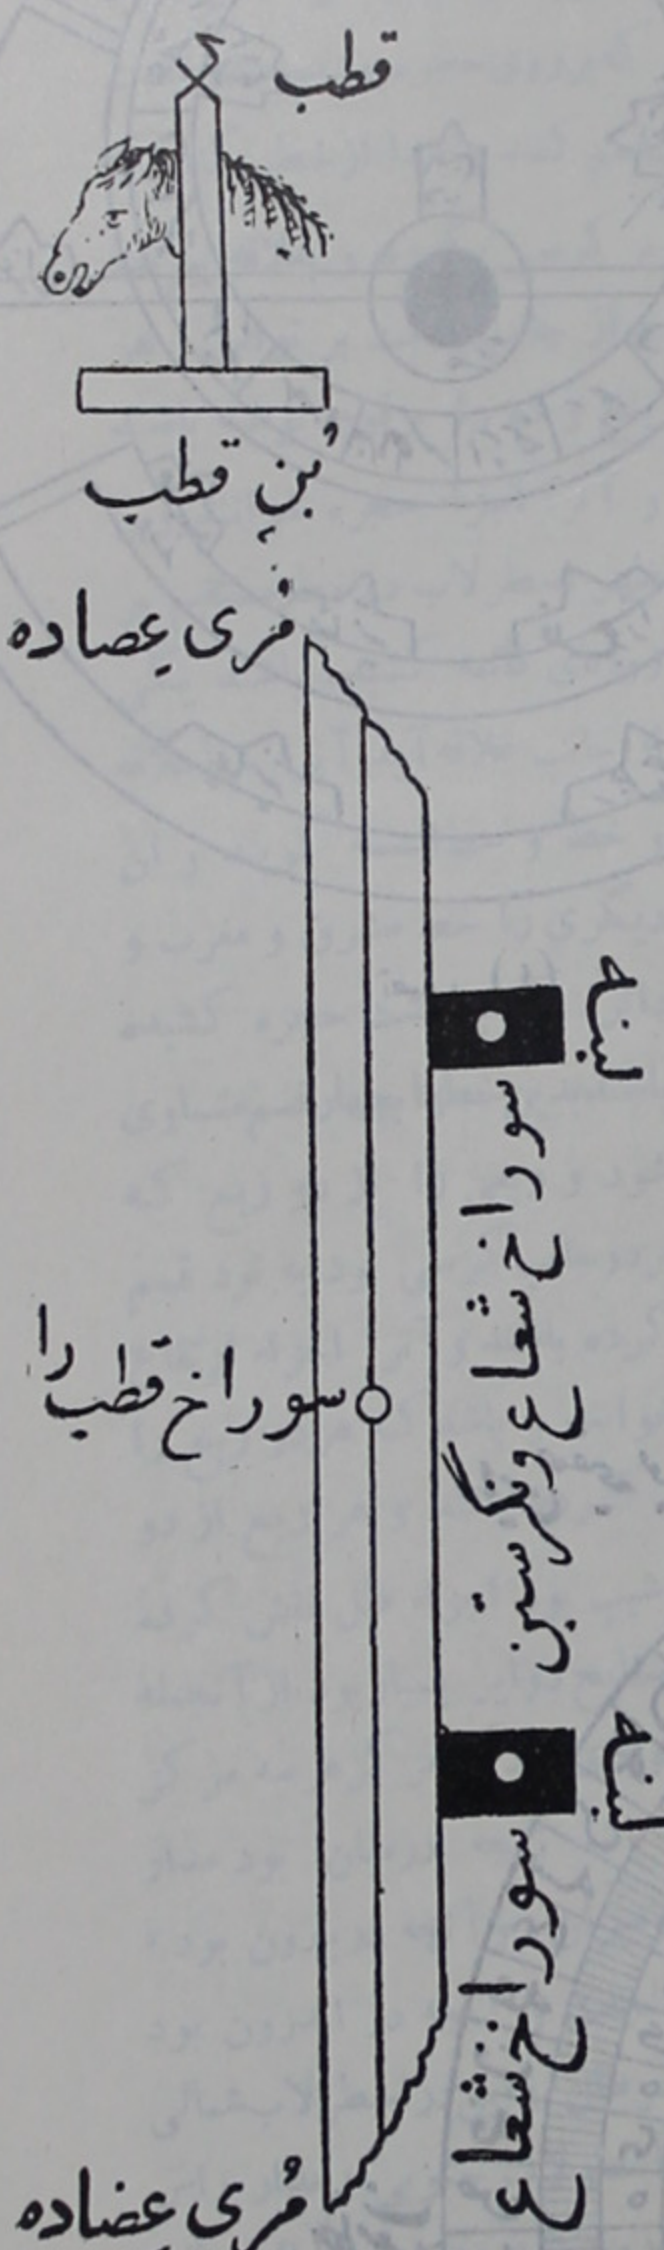 قطب
بُنِ قطب
فری عصاده
لبنه
سوراخ شعاع ونگرستن
سوراخ قطب را
لبنه
سوراخ شعاع
مُری عضاده